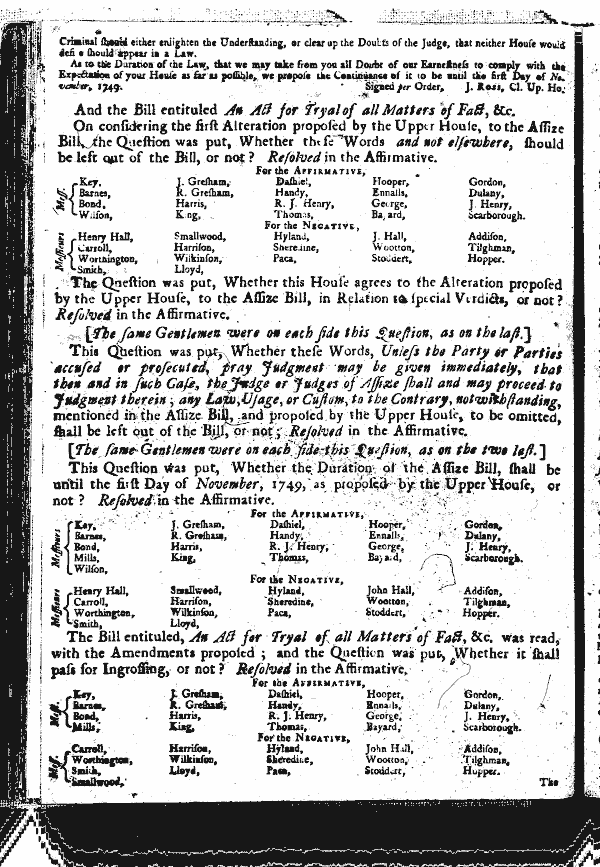 Criminal ſhould either enlighten the Underſtanding, or clear up the Doubts of the Judge, that neither Houſe would
ſhould appear in a Law.
As to the Duration of the Law, that we may take from you all Doubt of our Earneſtneſs to comply with the
Expectation of your Houſe as far as poſſible, we propoſe the Continuance of it to be until the firſt Day of No-
vember, 1749. Signed per Order, J. Ross, Cl. Up. Ho.
And the Bill entituled An Act for Tryal of all Matters of Fact, &c.
On conſidering the firſt Alteration propoſed by the Upper Houſe, to the Aſſize
Bill, the Queſtion was put, Whether theſe Words and not elſewhere, ſhould
be left out of the Bill, or not? Reſolved in the Affirmative.
For the AFFIRMATIVE,
Meſſ. Key, J. Greſham, Daſhiel, Hooper, Gordon,
Barnes, R. Greſham, Handy, Ennalls, Dulany,
Bond, Harris, R. J. Henry, George, J. Henry,
Wilſon, King, Thomas, Bayard, Scarborough.
For the NEGATIVE,
Meſſieurs Henry Hall, Smallwood, Hyland, J. Hall, Addiſon,
Carroll, Harriſon, Sheredine, Wootton, Tilghman,
Worthington, Wilkinſon, Paca, Stoddert, Hopper.
Smith, Lloyd,
The Queſtion was put, Whether this Houſe agrees to the Alteration propoſed
by the Upper Houſe, to the Aſſize Bill, in Relation to ſpecial Verdicts, or not?
Reſolved in the Affirmative.
[The ſame Gentlemen were on each ſide this Queſtion, as on the laſt.]
This Queſtion was put, Whether theſe Words, Unleſs the Party or Parties
accuſed or proſecuted, pray Judgment may be given immediately, that
then and in ſuch Caſe, the Judge or Judges of Aſſize ſhall and may proceed to
Judgment therein; any Law, Uſage, or Cuſtom, to the Contrary, notwithſtanding,
mentioned in the Aſſize Bill, and propoſed by the Upper Houſe, to be omitted,
ſhall be left out of the Bill, or not; Reſolved in the Affirmative.
[The ſame Gentlemen were on each ſide this Queſtion, as on the two laſt.]
This Queſtion was put, Whether the Duration of the Aſſize Bill, ſhall be
until the firſt Day of November, 1749, as propoſed by the Upper Houſe, or
not? Reſolved in the Affirmative.
For the AFFIRMATIVE,
Meſſieurs Key, J. Greſham, Daſhiel, Hooper, Gordon,
Barnes, R. Greſham, Handy, Ennalls, Dulany,
Bond, Harris, R. J. Henry, George, J. Henry,
Mills, King, Thomas, Bayard, Scarborough.
Wilſon,
For the NEGATIVE,
Meſſieurs Henry Hall, Smallwood, Hyland, John Hall, Addiſon,
Carroll, Harriſon, Sheredine, Wootton, Tilghman,
Worthington, Wilkinſon, Paca, Stoddert, Hopper.
Smith, Lloyd,
The Bill entituled, An Act for Tryal of all Matters of Fact, &c. was read,
with the Amendments propoſed; and the Queſtion was put, Whether it ſhall
paſs for Ingroſſing, or not? Reſolved in the Affirmative.
For the AFFIRMATIVE,
Meſſ. Key, J. Greſham, Daſhiel, Hooper, Gordon,
Barnes, R. Greſham, Handy, Ennalls, Dulany,
Bond, Harris, R. J. Henry, George, J. Henry,
Mills, King, Thomas, Bayard, Scarborough.
For the NEGATIVE,
Meſſ. Carroll, Harriſon, Hyland, John Hall, Addiſon,
Worthington, Wilkinſon, Sheredine, Wootton, Tilghman,
Smith, Lloyd, Paca, Stoddert, Hopper.
Smallwood,
The